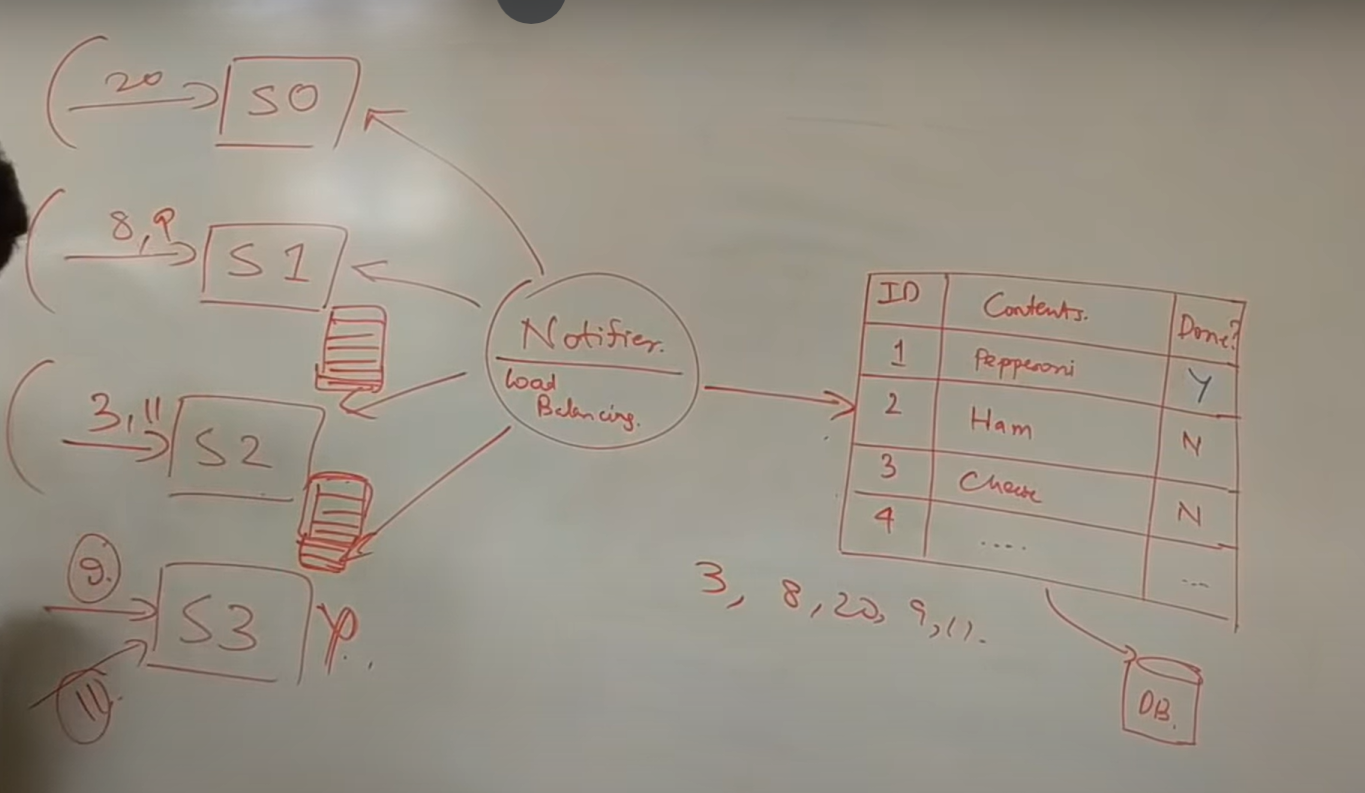 20
S0
8,9
S1
3,11
S2
9.
S3
11
Notifier.
Load
Balancing.
ID Contents. Done?
1 Pepperoni Y
2 Ham N
3 Cheese N
4 .... ...
3, 8, 20, 9, 11.
DB.